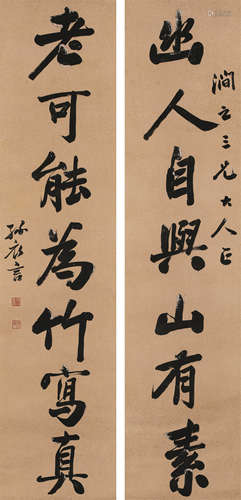 幽人自與山有素
澗雲三兄大人正
老可能為竹寫真
孫衣言